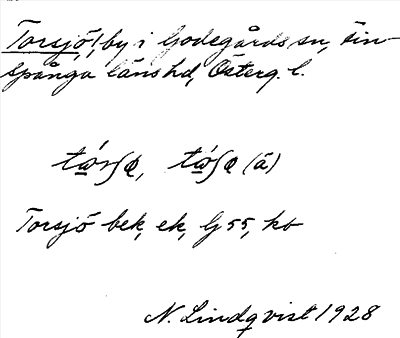 Torsjö, by i Godegårds sn, Fin-
spånga läns hd, Österg. l.
Torsjö bek, ek, Gj 55, kb
N. Lindqvist 1928